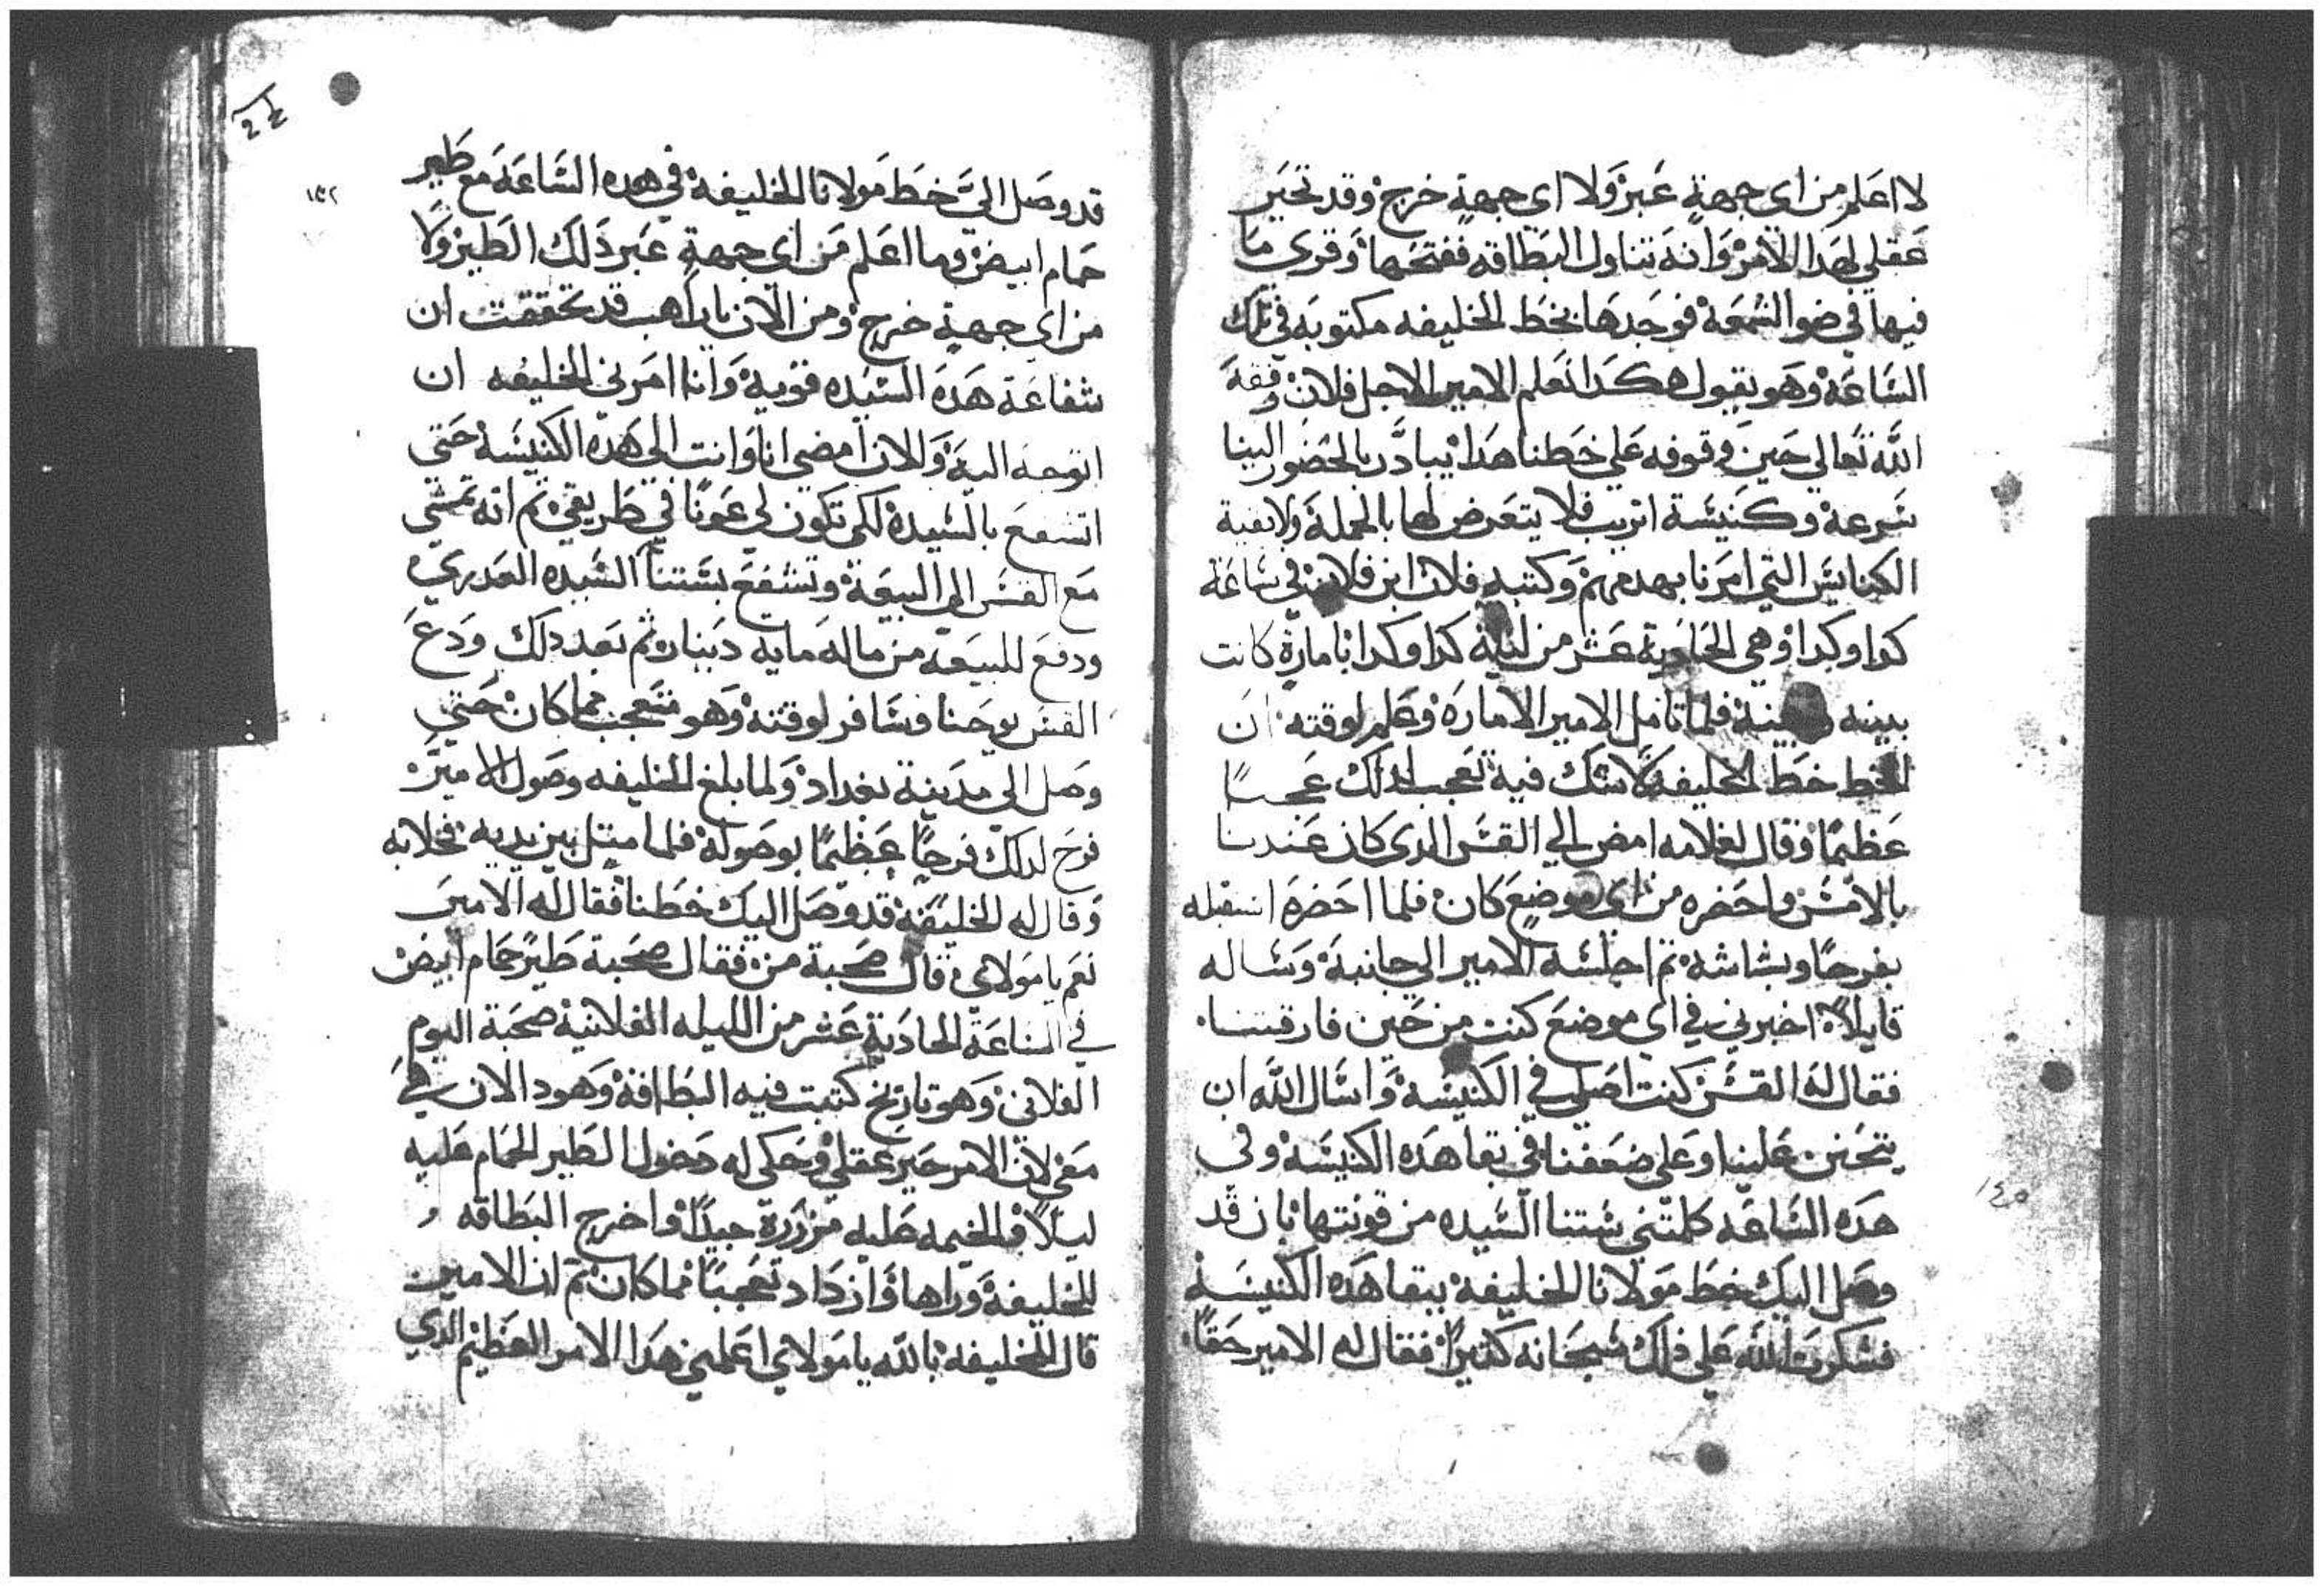 لا اعلم من اى جهةٍ عبر ولا اى جهةٍ خرج وقد تحير
عقلي لهدا الامر وانه تناول البطاقه ففتحها وقرى ما
فيها في ضو الشمعة فوجدها بخط الخليفه مكتوبه في تلك
الساعة وهو يقول هكدا نعلم الامير الاجل فلان وفقه
الله تعالي حين وقوفه علي خطنا هدا يبادر بالحضور الينا
سرعة وكنيسة اتريب فلا يتعرض لها بالجملة ولا بقية
الكنايس التي امرنا بهدمهم وكتبه فلان ابن فلان في ساعة
كدا وكدا وهي الحادية عشر من ليلة كدا وكدا بامارة كانت
بينه وبينه فلما تامل الامير الامارة وعلم لوقته ان
الخط خط الخليفه لا شك فيه تعجب لدلك عجبـًا
عظيمًا وقال لغلامه امض الي القس الدى كان عندنا
بالامس واحضره من اى موضع كان فلما احضره استقبله
بفرحًا وبشاشه تم اجلسه الامير الي جانبه وساله
قايلاً اخبرني في اى موضع كنت من حين فارقتنا
فقال له القس كنت اصلي في الكنيسه واسال الله ان
يتحنن علينا وعلى ضعفنا في بقا هده الكنيسه وفى
هده الساعه كلمتني ستنا السيده من قونتها بان قد
وصل اليك خط مولانا الخليفة ببقا هده الكنيسه
فشكرت الله علي دلك سبحانه كتيرًا فقال له الامير حقًا
١٤٥
١٤٢
قد وصل اليَّ خط مولانا الخليفة في هده الساعة مع طير
حمام ابيض وما اعلم من اى جهةٍ عبر دلك الطير ولا
من اى جهةٍ خرج ومن الان ياراهب قد تحققت ان
شفاعة هده السيده قوية وانا امرني الخليفه ان
اتوجه اليه والان امضى انا وانت الى هده الكنيسه حتي
اتشفع بالسيدة لكى تكون لي عونًا في طريقي تم انه تمشي
مع القس الي البيعة وتشفع بستنا السيده العدرى
ودفع للبيعه من ماله مايه دينار تم بعد دلك ودع
القس يوحنا وسافر لوقته وهو متعجب مما كان حتي
وصل الي مدينة بغداد ولما بلغ الخليفه وصول الامير
فرح لدلك فرحًا عظيمًا بوصوله فلما امتل بين يديه فخلا به
وقال له الخليفه قد وصل اليك خطنا فقال له الامير
نعم يا مولاي قال صحبة من فقال صحبة طير حمام ابيض
في الساعة الحادية عشر من الليله الفلانية صحبة اليوم
الفلاني وهو تاريخ كتبت فيه البطاقة وهودا الان في
معي لان الامر حير عقلي وحكى له دخول الطير الحمام عليه
ليلاً والخيمه عليه مزررة جيدًا واخرج البطاقه
للخليفة وراها وازداد تعجبًا مما كان تم ان الامير
قال للخليفة بالله يا مولاي اعلمني هدا الامر العظيم الدي